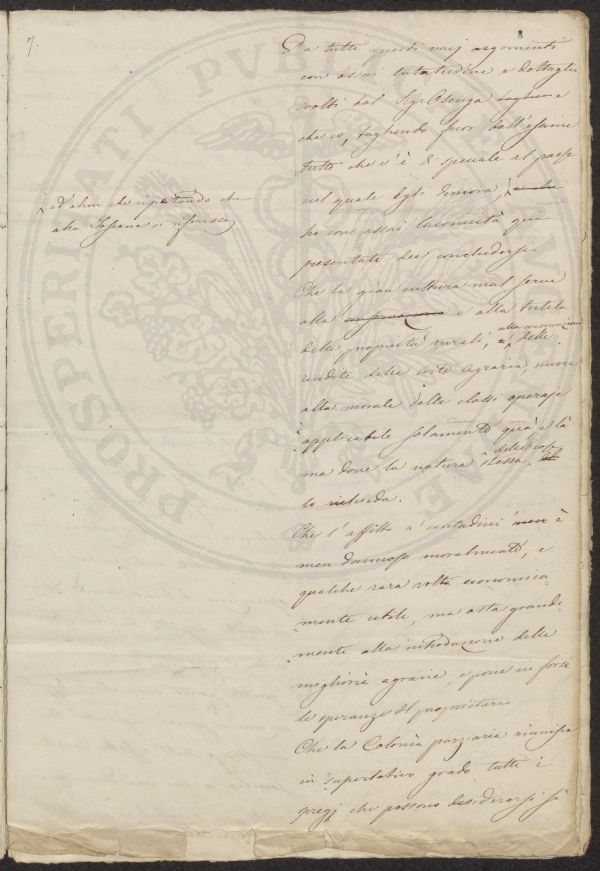 7.
8
Da tutti questi varj argomenti
con assai e dettaglio
svolti dal Sigr
che io, togliendo fuor dall'esame
tutto che v'è di speciale al paese
nel quale Egli dimora,
ed altri che ripetendo che
alla Toscana si riferisce
ho con assai laconicità qui
presentate dee concludersi
Che la gran cultura mal serve
alla e alla tutela
delle proprietà rurali, alla conservazione delle
rendite della arte agraria, nuoce
alla morale delle classi operaje
applicabile solamente quà e là
ma dove la natura stessa delle cose
lo richieda.
Che l'affitto a' contadini è
men dannoso moralmente, e
qualche rara volta economica-
mente utile, ma osta grande-
mente alla introduzione delle
migliorie agrarie, e pone in forse
le speranze del proprietario
Che la Colonia parziaria riunisce
in superlativo grado tutti i
pregj che possono desiderarsi sì
PROSPERITATI PVBLICAE